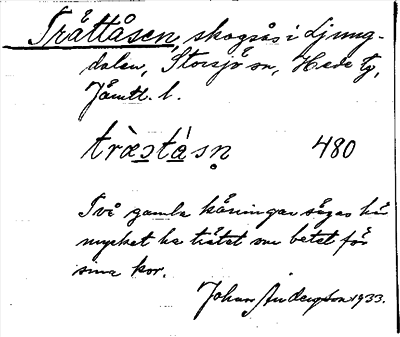 Tråttåsen, skogsås i Ljung-
dalen, Storsjö sn, Hede tg,
Jämtl. l.
tràstásn 480
Två gamla käringar sägas här
mycket ha trätat om betet för
sina kor.
Johan Andersson 1933.